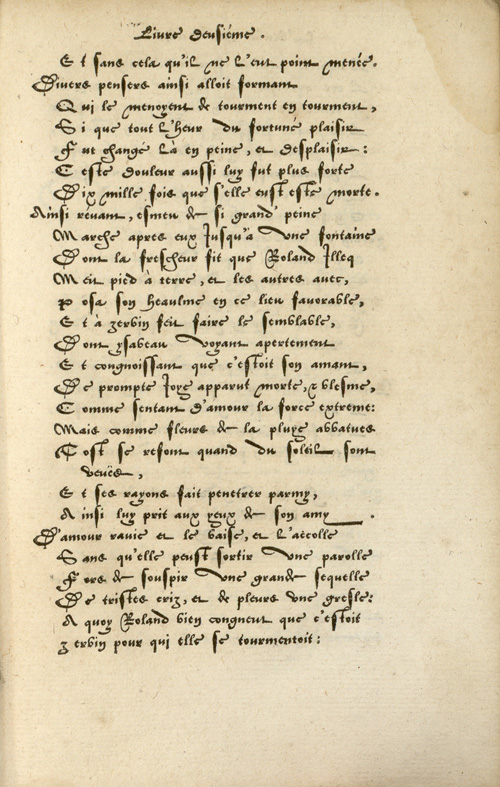 Livre deusiéme.
Et sans cela qu'il ne l'eut point menée.
Divers pensers ainsi alloit formant
Qui le menoyent de tourment en tourment,
Si que tout l'heur du fortuné plaisir
Fut changé là en peine, et desplaisir:
Ceste douleur aussi luy fut plus forte
Dix mille fois que s'elle eust esté morte.
Ainsi revant, esmeu de si grand' peine
Marche apres eux Jusqu'à une fontaine
Dont la frescheur fit que Roland Illeq
Meit pied à terre, et les autres avec,
Posa son heaulme en ce lieu favorable,
Et à zerbin feit faire le semblable,
Dont ysabeau voyant apertement
Et congnoissant que c'estoit son amant,
De prompte Joye apparut morte, & blesme,
Comme sentant d'amour la force extreme:
Mais comme fleurs de la pluye abbatues
Tost se refont quand du soleil sont
veuës,
Et ses rayons fait penetrer parmy,
Ainsi luy prit aux yeux de son amy.
D'amour ravie et le baise, et l'accolle
Sans qu'elle peust sortir une parolle
Fors de souspir une grande sequelle
De tristes criz, et de pleurs une gresle:
A quoy Roland bien congneut que c'estoit
zerbin pour qui elle se tourmentoit: